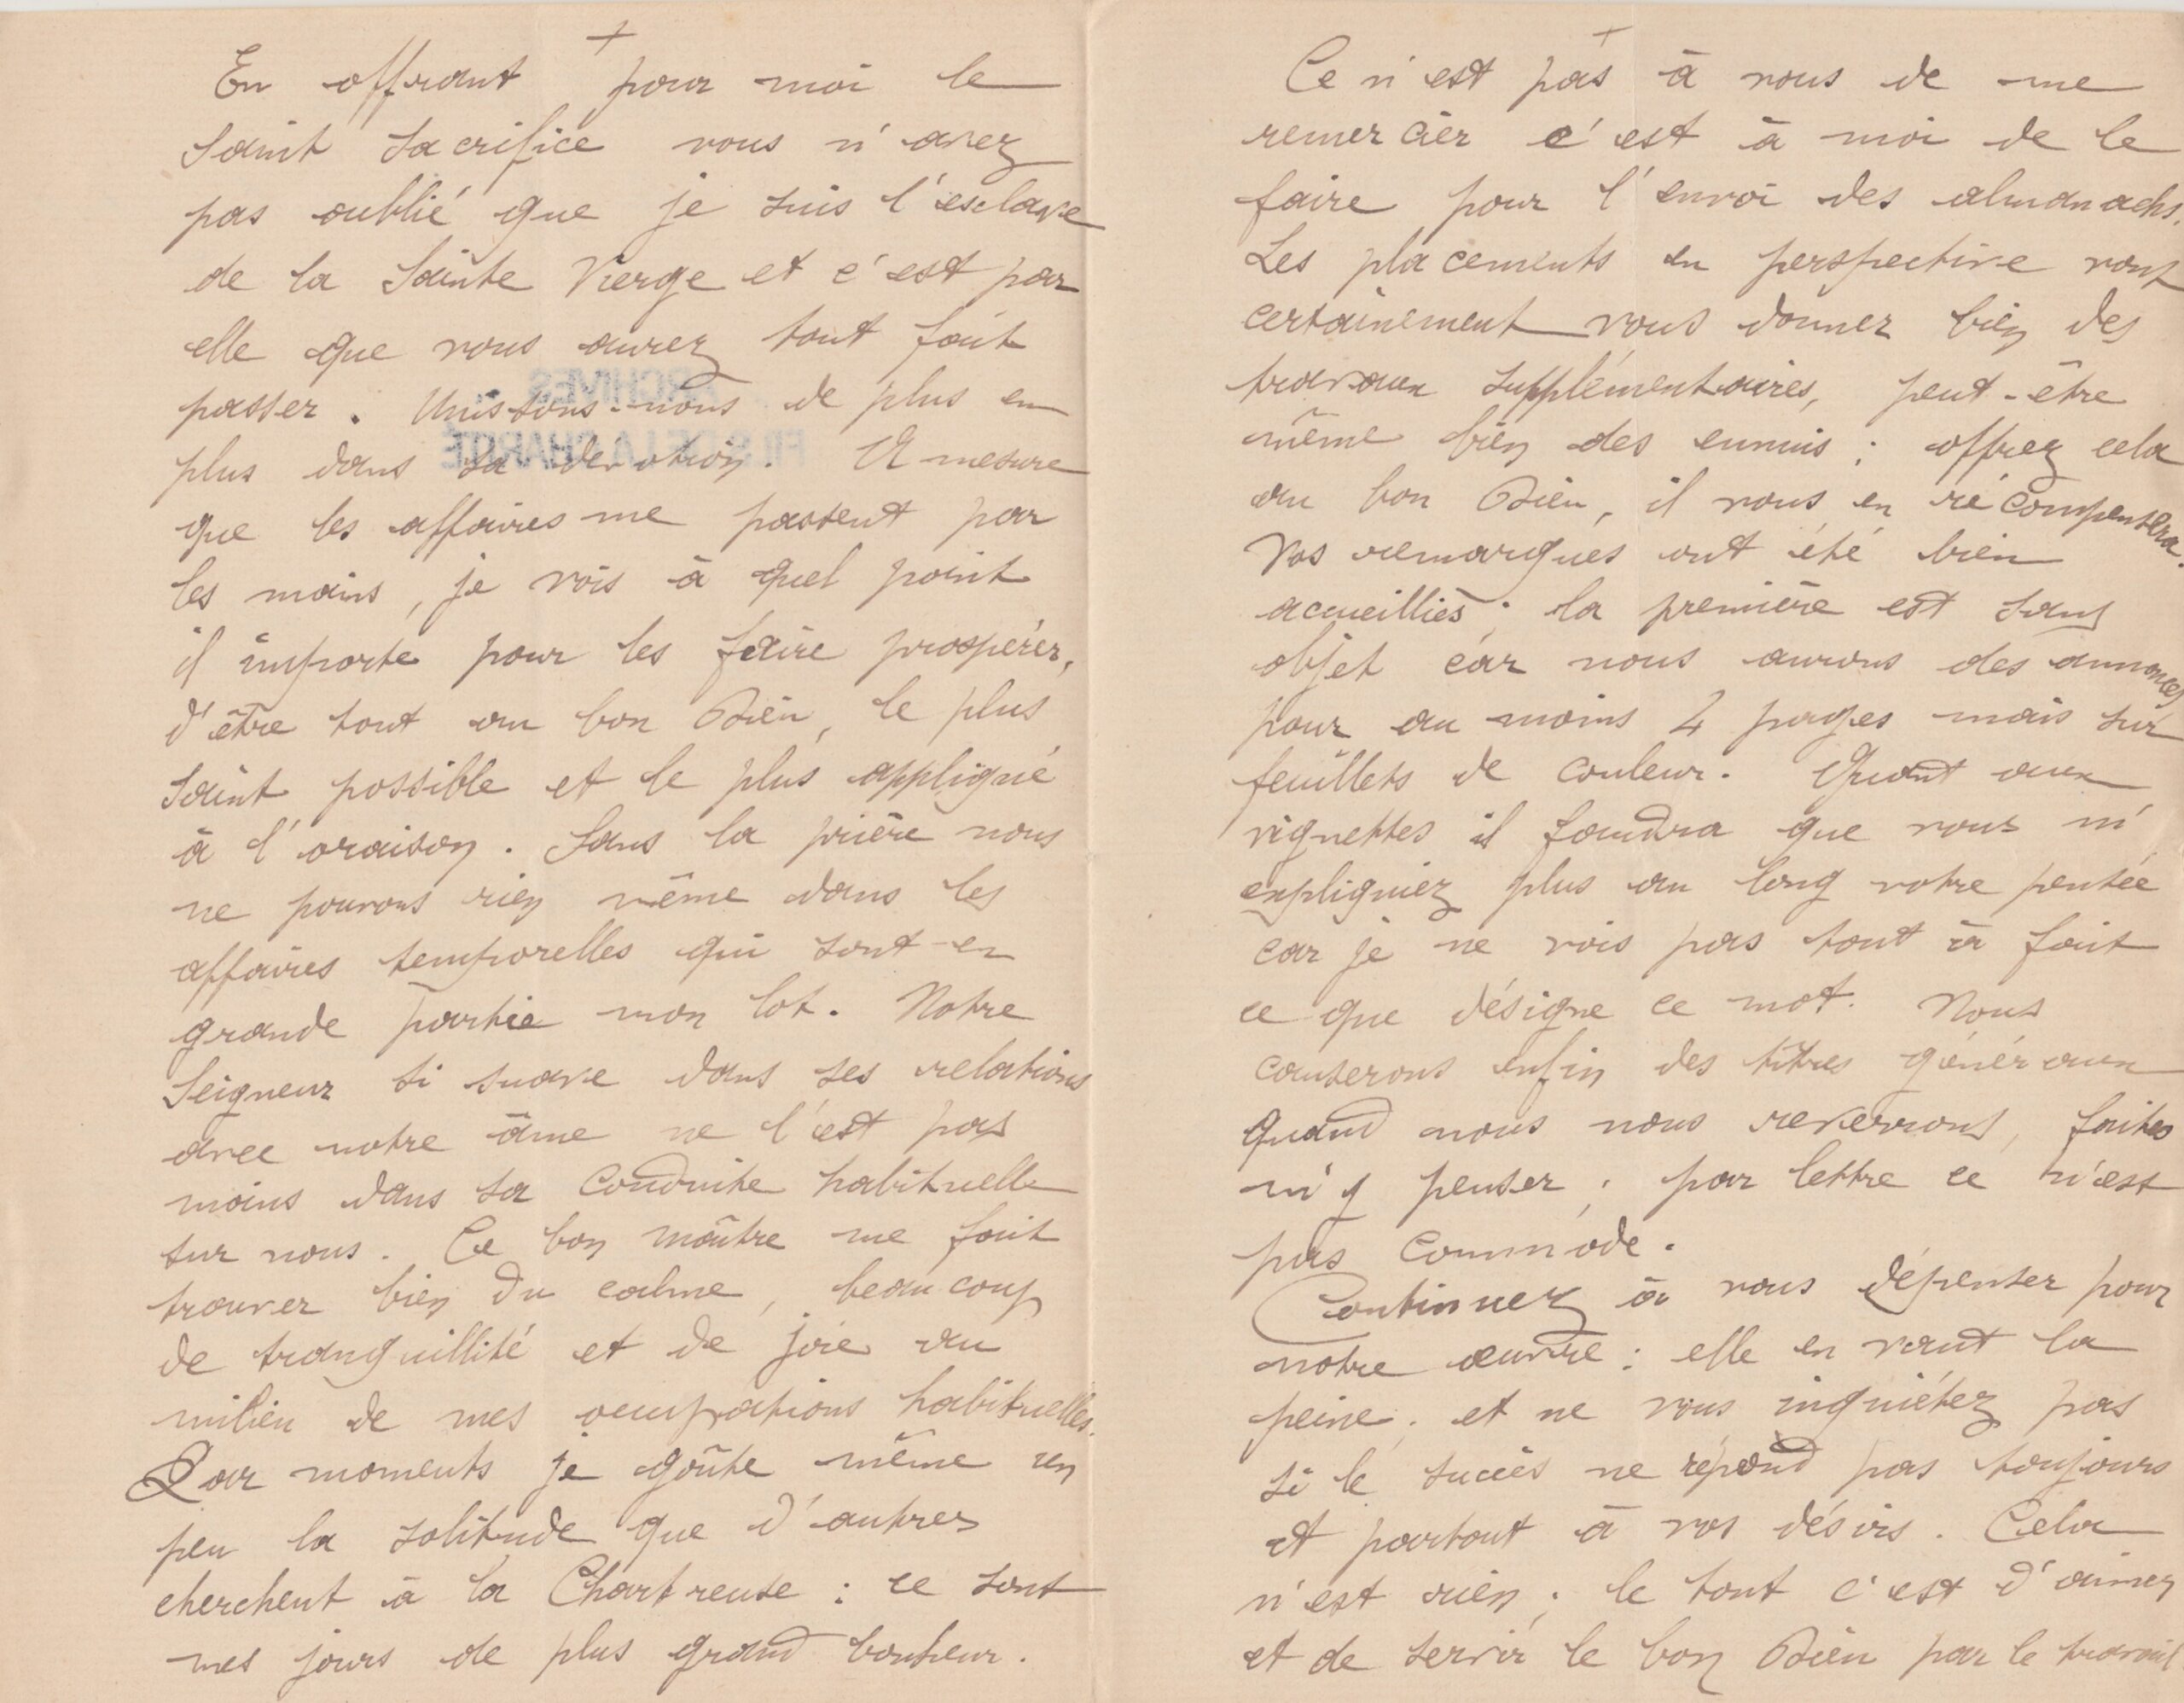 +
En offrant pour moi le
Saint Sacrifice vous n'avez
pas oublié que je suis l'esclave
de la Sainte Vierge et c'est par
elle que vous aurez tout fait
passer. Unissons-nous de plus en
plus dans sa dévotion. A mesure
que les affaires me passent par
les mains, je vois à quel point
il importe pour les faire prospérer,
d'être tout au bon Dieu, le plus
saint possible et le plus appliqué
à l'oraison. Sans la prière nous
ne pouvons rien même dans les
affaires temporelles qui sont en
grande partie mon lot. Notre
Seigneur si suave dans ses relations
avec notre âme ne l'est pas
moins dans sa conduite habituelle
sur nous. Ce bon maître me fait
trouver bien du calme, beaucoup
de tranquillité et de joie au
milieu de mes occupations habituelles.
Par moments je goûte même un
peu la solitude que d'autres
cherchent à la Chartreuse : ce sont
mes jours de plus grand bonheur.
ARCHIVES
FILS DE LA CHARITÉ
+
Ce n'est pas à vous de me
remercier c'est à moi de le
faire pour l'envoi des almanachs.
Les placements en perspective vont
certainement vous donner bien des
travaux supplémentaires, peut-être
même bien des ennuis ; offrez cela
au bon Dieu, il vous en récompensera.
Vos remarques ont été bien
accueillies ; la première est sans
objet car nous aurons des annonces
pour au moins 4 pages mais sur
feuillets de couleur. Quant aux
vignettes il faudra que vous m'
expliquiez plus au long votre pensée
car je ne vois pas tout à fait
ce que désigne ce mot. Nous
causerons enfin des titres généraux
quand nous nous reverrons, faites
m'y penser ; par lettre ce n'est
pas commode.
Continuez à vous dépenser pour
notre œuvre : elle en vaut la
peine ; et ne vous inquiétez pas
si le succès ne répond pas toujours
et partout à vos désirs. Cela
n'est rien ; le tout c'est d'aimer
et de servir le bon Dieu par le travail